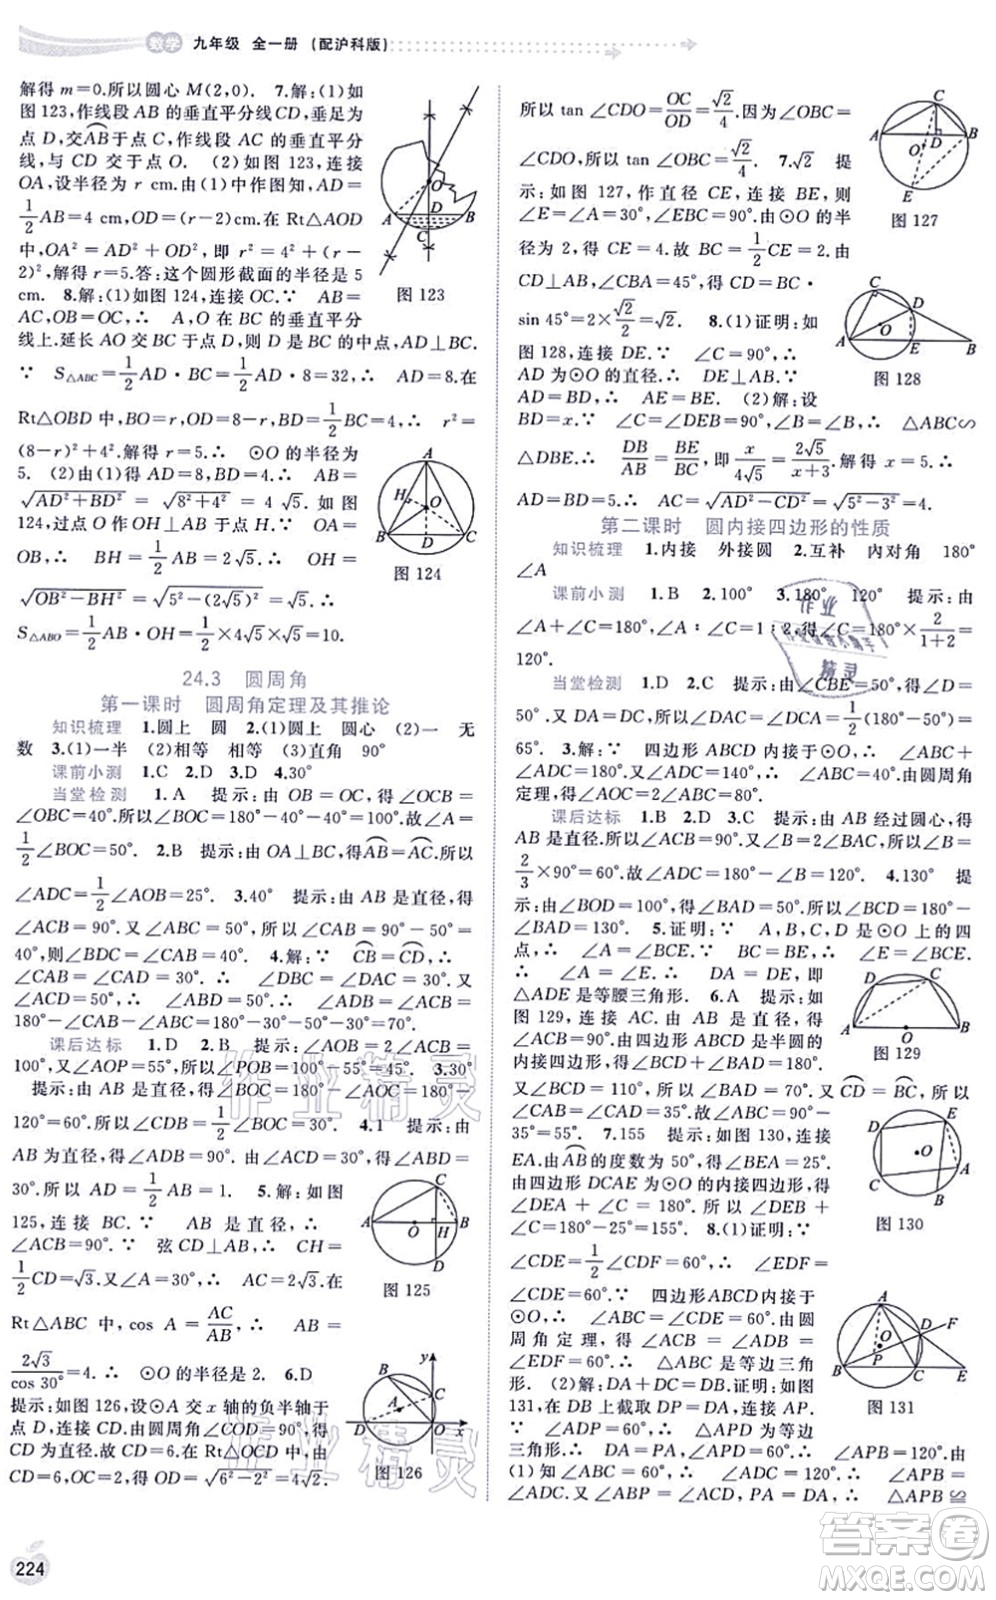 数学 九年级 全一册 (配沪科版)
解得 m=0.所以圆心 M(2,0). 7.解:(1)如
图 123,作线段 AB 的垂直平分线CD,垂足为
点 D,交AB于点 C,作线段 AC 的垂直平分
线,与 CD 交于点 O. (2)如图 123,连接
OA,设半径为 r cm.由(1)中作图知,AD=
1/2AB=4 cm,OD=(r-2)cm.在 Rt△AOD
中,OA²=AD²+OD²,即 r²=4²+(r-
2)²,解得 r=5.答:这个圆形截面的半径是 5
cm. 8.解:(1)如图 124,连接 OC.∵ AB=
AC,OB=OC,∴ A,O 在BC的垂直平分
线上.延长 AO 交 BC 于点 D,则 AD⊥BC.
∵ S△ABC=1/2AD·BC=1/2AD·8=32,∴ AD=8.在
Rt△OBD 中,BO=r,OD=8-r,BD=1/2BC=4,∴ r²=
(8-r)²+4²,解得 r=5.∴ ⊙O 的半径为
5. (2)由(1)得 AD=8,BD=4.∴ AB=
√(AD²+BD²)=√(8²+4²)=4√5. 如图
124,过点 O作 OH⊥AB 于 H.∵ OA=
OB,∴ BH=1/2AB=2√5.∴ OH=
√(OB²-BH²)=√(5²-(2√5)²)=√5.∴
S△ABO=1/2AB·OH=1/2×4√5×√5=10.
图 123
图 124
24.3 圆周角
第一课时 圆周角定理及其推论
知识梳理 1.圆上 圆 2.(1)圆上 圆心 (2)一 无
数 3.(1)一半 (2)相等 相等 (3)直角 90°
课前小测 1.C 2.D 3.D 4.30°
当堂检测 1.A 提示:由 OB=OC,得∠OCB=
∠OBC=40°.所以∠BOC=180°-40°-40°=100°.故∠A=
1/2∠BOC=50°. 2.B 提示:由OA⊥BC,得AB=AC.所以
∠ADC=1/2∠AOB=25°. 3.40° 提示:由 AB 是直径,得
∠ACB=90°.又∠CAB=50°,所以∠ABC=90°-50°=
40°,则∠BDC=∠CAB=40°. 4.解:∵ CB=CD,∴
∠CAB=∠CAD=30°.∴ ∠DBC=∠CAD=30°.又
∠ACD=50°,∴ ∠ABD=∠ACD=50°.∴ ∠ACB=
180°-∠CAB-∠ABC=180°-30°-50°-30°=70°.
课后达标 1.D 2.D 提示:由∠ACB=90°,得∠AOB=
180°.又∠AOP=55°,所以∠POB=100°-55°=45°. 3.30°
提示:由∠BDC=180°-∠AOC=
120°=60°.所以∠CDB=1/2∠BOC=30°. 4.1 提示:由
AB 为直径,得∠ADB=90°.由∠ACD=30°,得∠ABD=
30°.所以 AD=1/2AB=1. 5.解:如图
125,连接 BC.∵ AB 是直径,∴
∠ACB=90°.∵ 弦CD⊥AB,∴ CH=
1/2CD=√3.∵∠A=30°,∴ AC=2√3.在
Rt△ABC 中,cos A=AC/AB,∴ AB=
2√3/cos 30°=4.∴ ⊙O 的半径是 2. 6.D
提示:如图 126,设⊙A交 x 轴的负半轴于
点 D,连接CD.由圆周角∠COD=90°,得
CD 为直径.故 CD=6.在 Rt△COD 中,由
CD=6,OC=2,得 OD=√(6²-2²)=4√2.
图 125
图 126
所以 tan ∠CDO=OC/OD=√2/4.因为∠OBC=
∠CDO,所以 tan ∠OBC=√2/4. 7.√2 提
示:如图 127,作直径 CE,连接 BE,则
∠E=∠A=30°,∠EBC=90°.由⊙O的半
径为 2,得 CE=4.故 BC=1/2CE=2.由
CD⊥AB,∠CBA=45°,得 CD=BC·
sin 45°=2×√2/2=√2. 8.(1)证明:如
图 128,连接 DE.∵ ∠C=90°,∴
AD 为⊙O 的直径.∴ DE⊥AB.又
AD=BD,∴ AE=BE. (2)解:设
BD=x.∵ ∠C=∠DEB=90°,∠B=∠B,∴ △ABC∽
△DBE.∴ DB/AB=BE/BC.∴ x/4√5=2√5/(x+3).∴解得 x=5.∴
AD=BD=5.∴ AC=√(AD²-CD²)=√(5²-3²)=4.
图 127
图 128
第二课时 圆内接四边形的性质
知识梳理 1.内接 外接圆 2.互补 内对角 180°
∠A
课前小测 1.B 2.100° 3.180° 120° 提示:由
∠A+∠C=180°,∠A∶∠C=1∶2,得∠C=180°×2/(1+2)=
120°.
当堂检测 1.D 2.C 提示:由∠CBE=50°,得∠ADC=
50°.又 DA=DC,所以∠DAC=∠DCA=1/2(180°-50°)=
65°. 3.解:∵ 四边形 ABCD 内接于⊙O,∴ ∠A+
∠C=180°.又∠A=140°,∴ ∠C=180°-∠A=40°.由圆周角
定理,得∠AOC=2∠ABC=80°.
课后达标 1.B 2.D 3.C 提示:由 AB 经过圆心,得
AB 是直径.所以∠ACB=90°.又∠B=2∠BAC,所以∠B=
2/3×90°=60°.故∠D=180°-∠B=120°. 4.130° 提
示:由∠BOD=100°,得∠BAD=50°.所以∠BCD=180°-
∠BAD=130°. 5.证明:∵ A,B,C,D 是⊙O 上的四
点,∴ ∠A=∠BCE.∵ BC=BE,∴ ∠E=∠BCE.
∴ ∠A=∠E.∴ DA=DE,即
△ADE 是等腰三角形. 6.A 提示:如
图 129,连接 AC.由 AB 是直径,得
∠ACB=90°.由四边形 ABCD 是半圆的
内接四边形,得∠BCD+∠BAD=180°.
又∠BCD=110°,所以∠BAD=70°.又DC=BC,所以
∠BAC=∠DAC=35°.故∠ABC=
55°. 7.155 提示:如图 130,连接
EA.由AB的度数为 50°,得∠BEA=25°.
由四边形 DCAE 为⊙O 的内接四边
形,得∠DEA+∠C=180°.所以∠DEB+
∠C=180°-25°=155°. 8.(1)证明:∵
∠CDE=1/2∠CDF=60°,∴ ∠EDF=
∠CDE=60°.∵ 四边形 ABCD内接于
⊙O,∴ ∠ABC=∠CDE=60°.由圆
周角定理,得∠ACB=∠ADB=
∠EDF=60°.∴ △ABC 是等边三角
形. (2)解:DA+DC=DB.理由如图
131,在 DB 上截取 PD=AD,连接
AP.∵ ∠ADP=60°,∴ △APD 为等边
三角形.∴ AD=AP,∠APD=60°.∴ ∠APB=120°.由
(1)知 ∠ABC=60°,∴ ∠ADC=120°.∴ ∠APB=
∠ADC.又∵∠ABP=∠ACD,PA=DA,∴ △APB≌
图 129
图 130
图 131
224